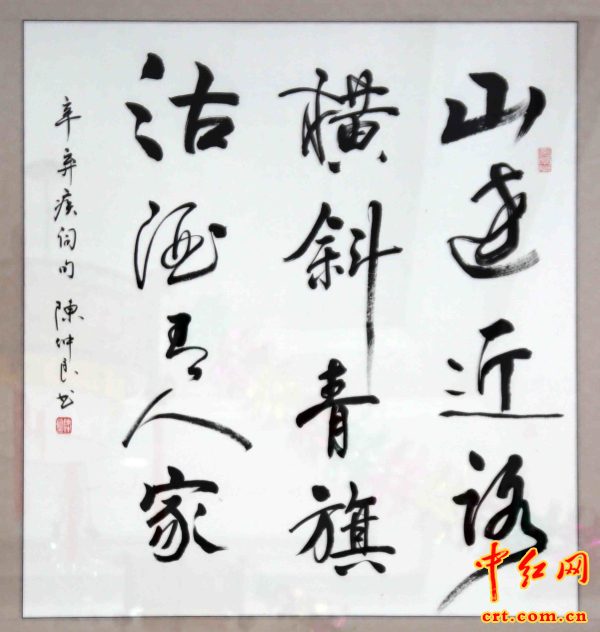 山遠近路
横斜青旗
沽酒有人家
辛弃疾词句 陳坤良书
中红网
crt.com.cn